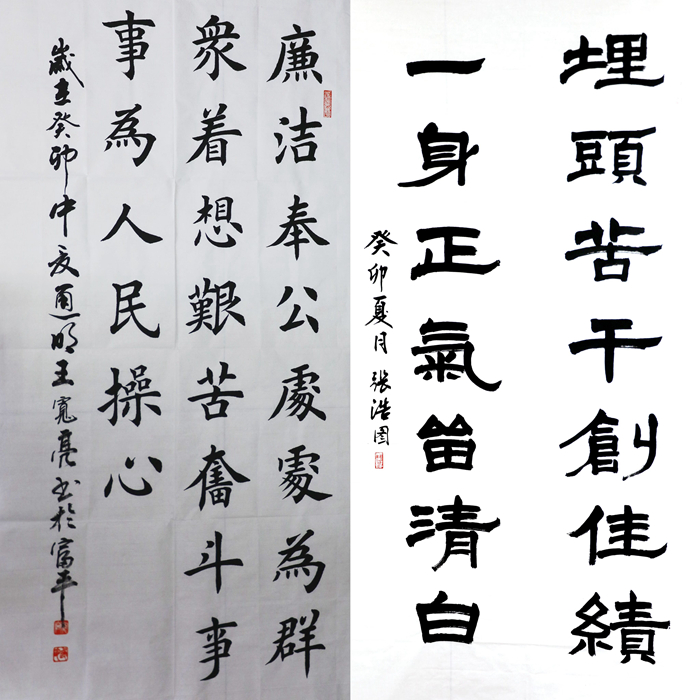 廉洁奉公處處為群
衆着想艱苦奮斗事
事為人民操心
歲在癸卯中夏王寬亮书於富平
埋頭苦干創佳績
一身正氣留清白
癸卯夏月張浩图